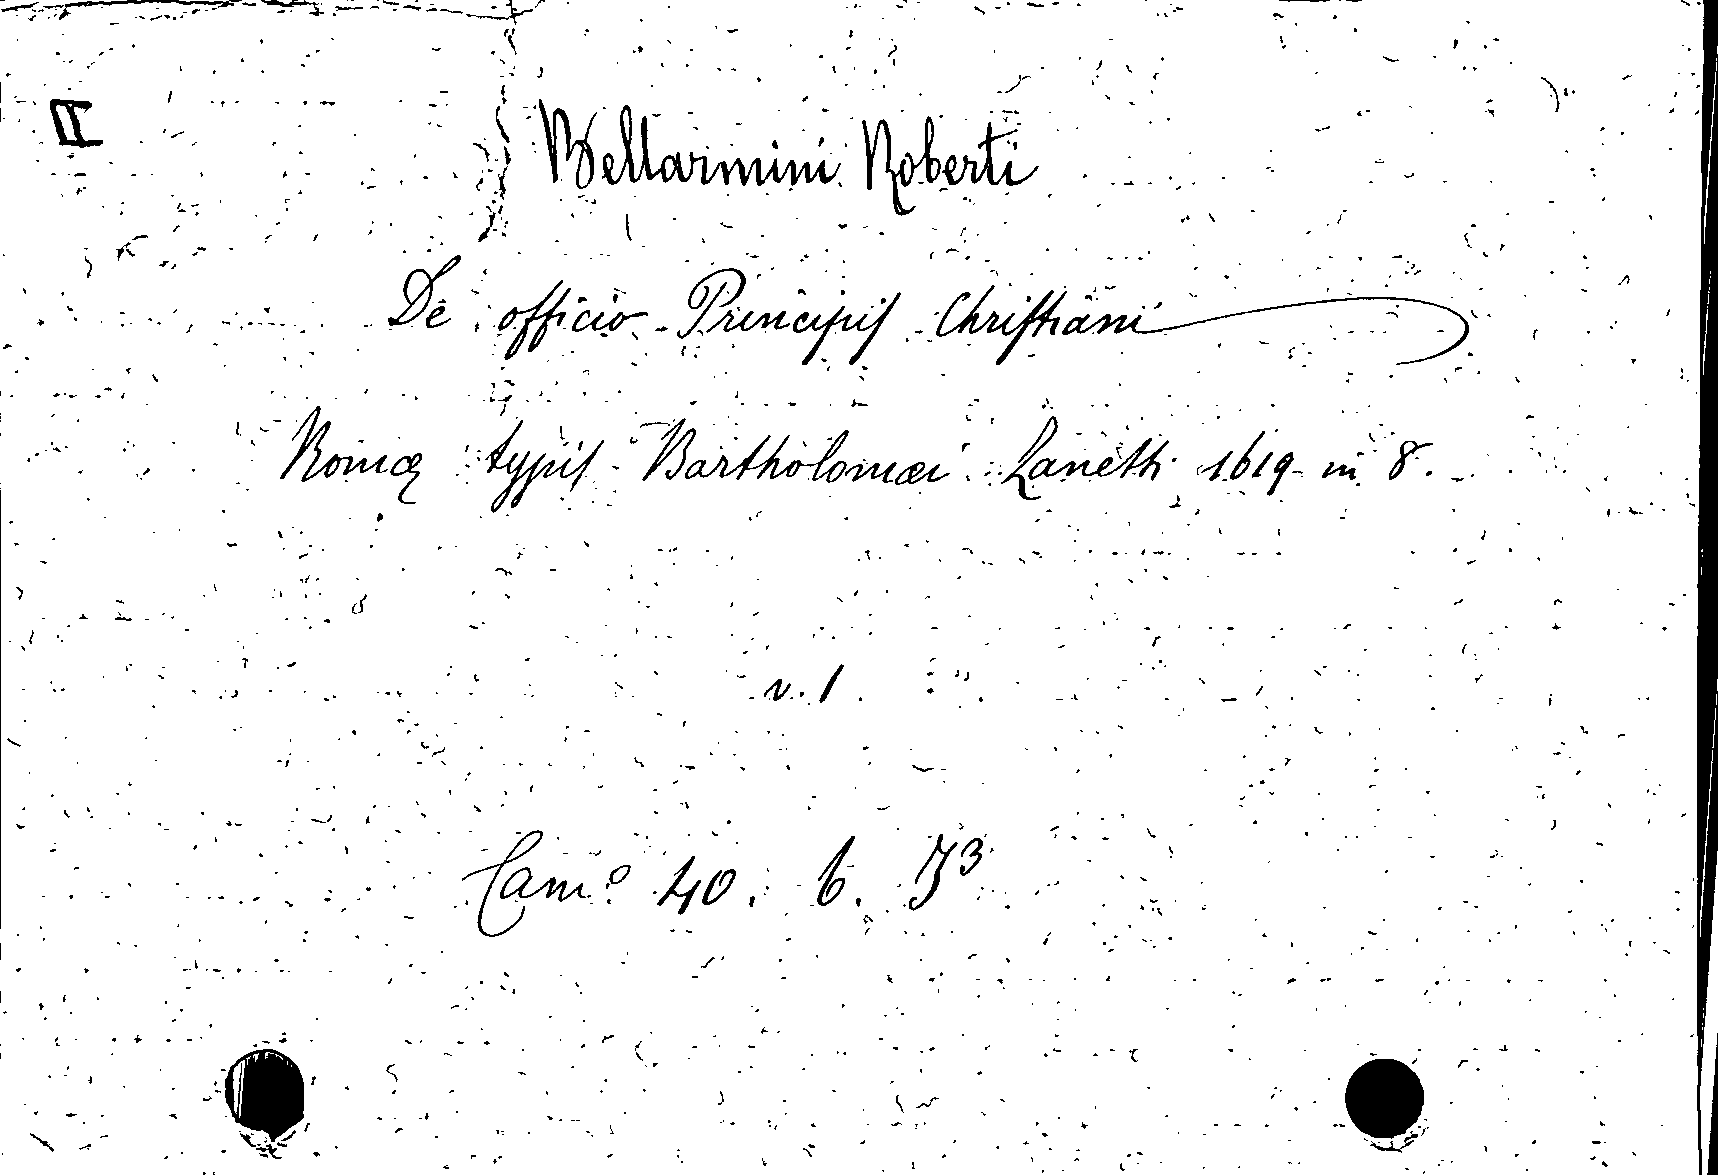 II
Bellarmini Roberti
De officio Principiſ Chriſtiani
Romæ typiſ Bartholomæi Zanetti 1619 in 8.
v. 1
Cam.º 40. b. 73